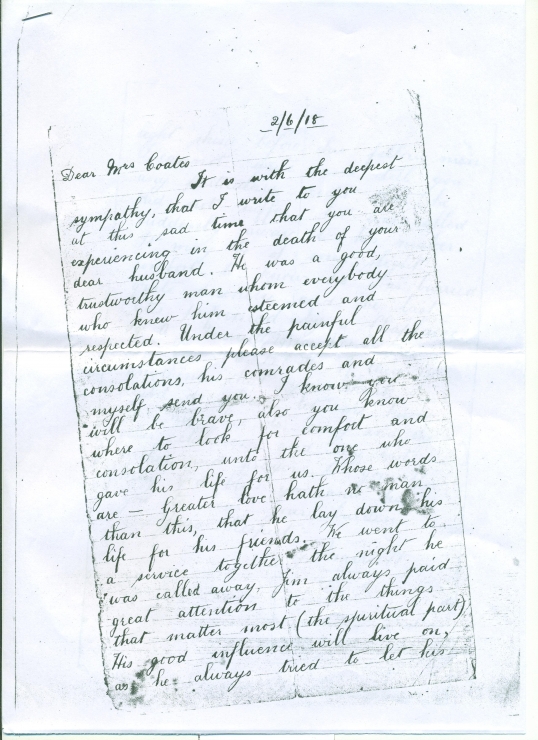 2/6/18
Dear Mrs Coates
It is with the deepest
sympathy, that I write to you
at this sad time that you are
experiencing in the death of your
dear husband. He was a good,
trustworthy man whom everybody
who knew him esteemed and
respected. Under the painful
circumstances please accept all the
consolations, his comrades and
myself, send you. I know you
will be brave, also you know
where to look for comfort and
consolation, unto the one who
gave his life for us. Whose words
are — Greater love hath no man
than this, that he lay down his
life for his friends. We went to
a service together the night he
was called away. Jim always paid
great attention to the things
that matter most (the spiritual part)
His good influence will live on,
as he always tried to let his